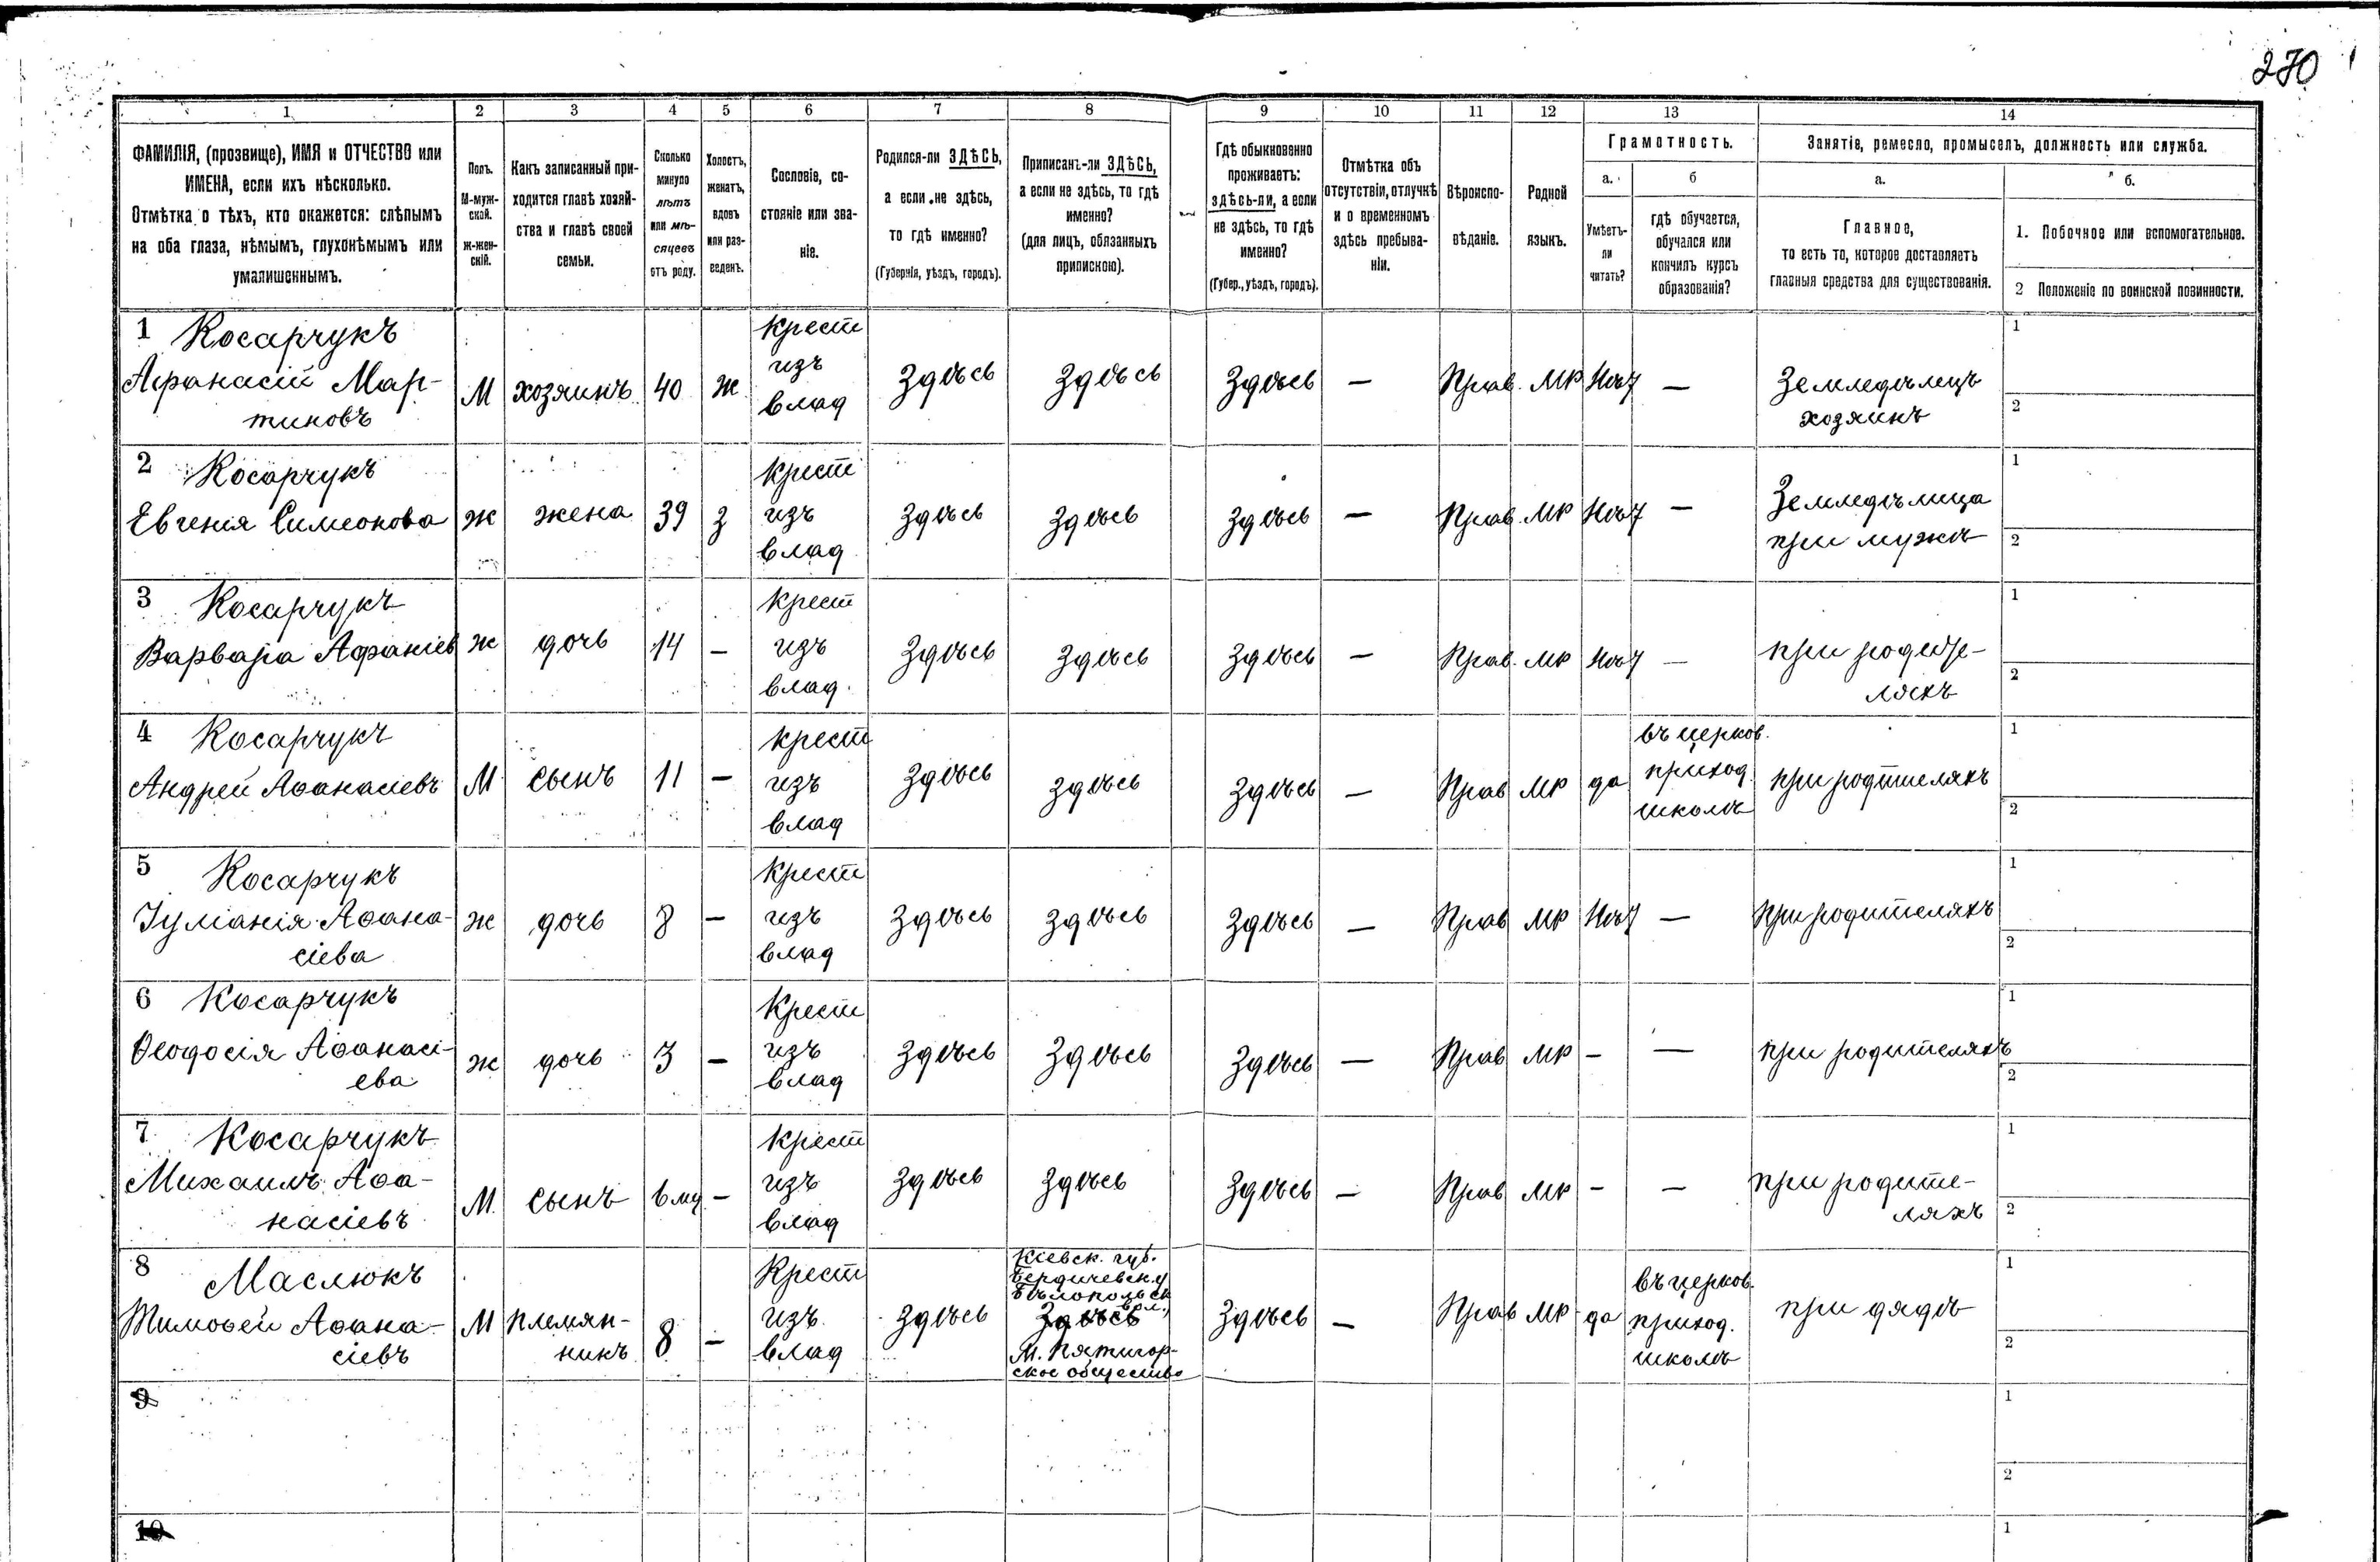 270
1 2 3 4 5 6 7 8 9 10 11 12 13 14
ФАМИЛІЯ, (прозвище), ИМЯ и ОТЧЕСТВО или
ИМЕНА, если ихъ нѣсколько.
Отмѣтка о тѣхъ, кто окажется: слѣпымъ
на оба глаза, нѣмымъ, глухонѣмымъ или
умалишеннымъ.
Полъ.
М-муж-
ской.
ж-жен-
скій.
Какъ записанный при-
ходится главѣ хозяй-
ства и главѣ своей
семьи.
Сколько
минуло
лѣтъ
или мѣ-
сяцевъ
отъ роду.
Холостъ,
женатъ,
вдовъ
или раз-
веденъ.
Сословіе, со-
стояніе или зва-
ніе.
Родился-ли ЗДѢСЬ,
а если не здѣсь,
то гдѣ именно?
(Губернія, уѣздъ, городъ).
Приписанъ-ли ЗДѢСЬ,
а если не здѣсь, то гдѣ
именно?
(для лицъ, обязанныхъ
припискою).
Гдѣ обыкновенно
проживаетъ:
здѣсь-ли, а если
не здѣсь, то гдѣ
именно?
(Губер., уѣздъ, городъ).
Отмѣтка объ
отсутствіи, отлучкѣ
и о временномъ
здѣсь пребыва-
ніи.
Вѣроиспо-
вѣданіе.
Родной
языкъ.
Грамотность.
а.
Умѣетъ-
ли
читать?
б
гдѣ обучается,
обучался или
кончилъ курсъ
образованія?
Занятіе, ремесло, промыселъ, должность или служба.
а.
Главное,
то есть то, которое доставляетъ
главныя средства для существованія.
б.
1. Побочное или вспомогательное.
2 Положеніе по воинской повинности.
1 Косарчукъ
Афанасій Мар-
тиновъ
М
хозяинъ
40
ж
Крест
изъ
влад
Здѣсь
Здѣсь
Здѣсь
—
Прав.
МР
Нѣт
—
Земледѣлецъ
хозяинъ
1
2
2 Косарчукъ
Евгенія Симеонова
ж
жена
39
з
Крест
изъ
влад
Здѣсь
Здѣсь
Здѣсь
—
Прав.
МР
Нѣт
—
Земледѣлица
при мужѣ
1
2
3 Косарчукъ
Варвара Афаніев
ж
дочь
14
—
Крест
изъ
влад.
Здѣсь
Здѣсь
Здѣсь
—
Прав.
МР
Нѣт
—
при родите-
ляхъ
1
2
4 Косарчукъ
Андрей Аѳанасіевъ
М
сынъ
11
—
крест
изъ
влад
Здѣсь
Здѣсь
Здѣсь
—
Прав
МР
да
въ церков.
приход.
школѣ
при родителяхъ
1
2
5 Косарчукъ
Іуліанія Аѳана-
сіева
ж
дочь
8
—
Крест
изъ
влад
Здѣсь
Здѣсь
Здѣсь
—
Прав
МР
Нѣт
—
При родителяхъ
1
2
6 Косарчукъ
Ѳеодосія Аѳанасі-
ева
ж
дочь
3
—
Крест
изъ
влад
Здѣсь
Здѣсь
Здѣсь
—
Прав
МР
—
—
при родителяхъ
1
2
7 Косарчукъ
Михаилъ Аѳа-
насіевъ
М.
сынъ
—
Крест
изъ
влад
Здѣсь
Здѣсь
Здѣсь
—
Прав
МР
—
—
при родите-
ляхъ
1
2
8 Маслюкъ
Тимоѳей Аѳана-
сіевъ
М
племян-
никъ
8
—
Крест
изъ
влад
Здѣсь
Кіевск. губ.
Бердичевск. у
Бѣлопольск
вол.,
Здѣсь
М. Пятигор-
ское общество
Здѣсь
—
Прав
МР
да
въ церков.
приход.
школѣ
при дядѣ
1
2
9
1
2
10
1